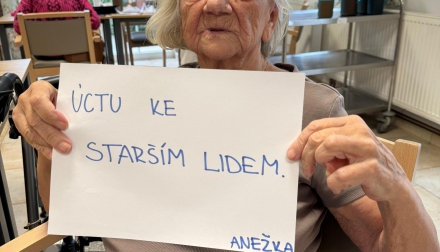 ÚCTU KE
STARŠÍM LIDEM.
ANEŽKA